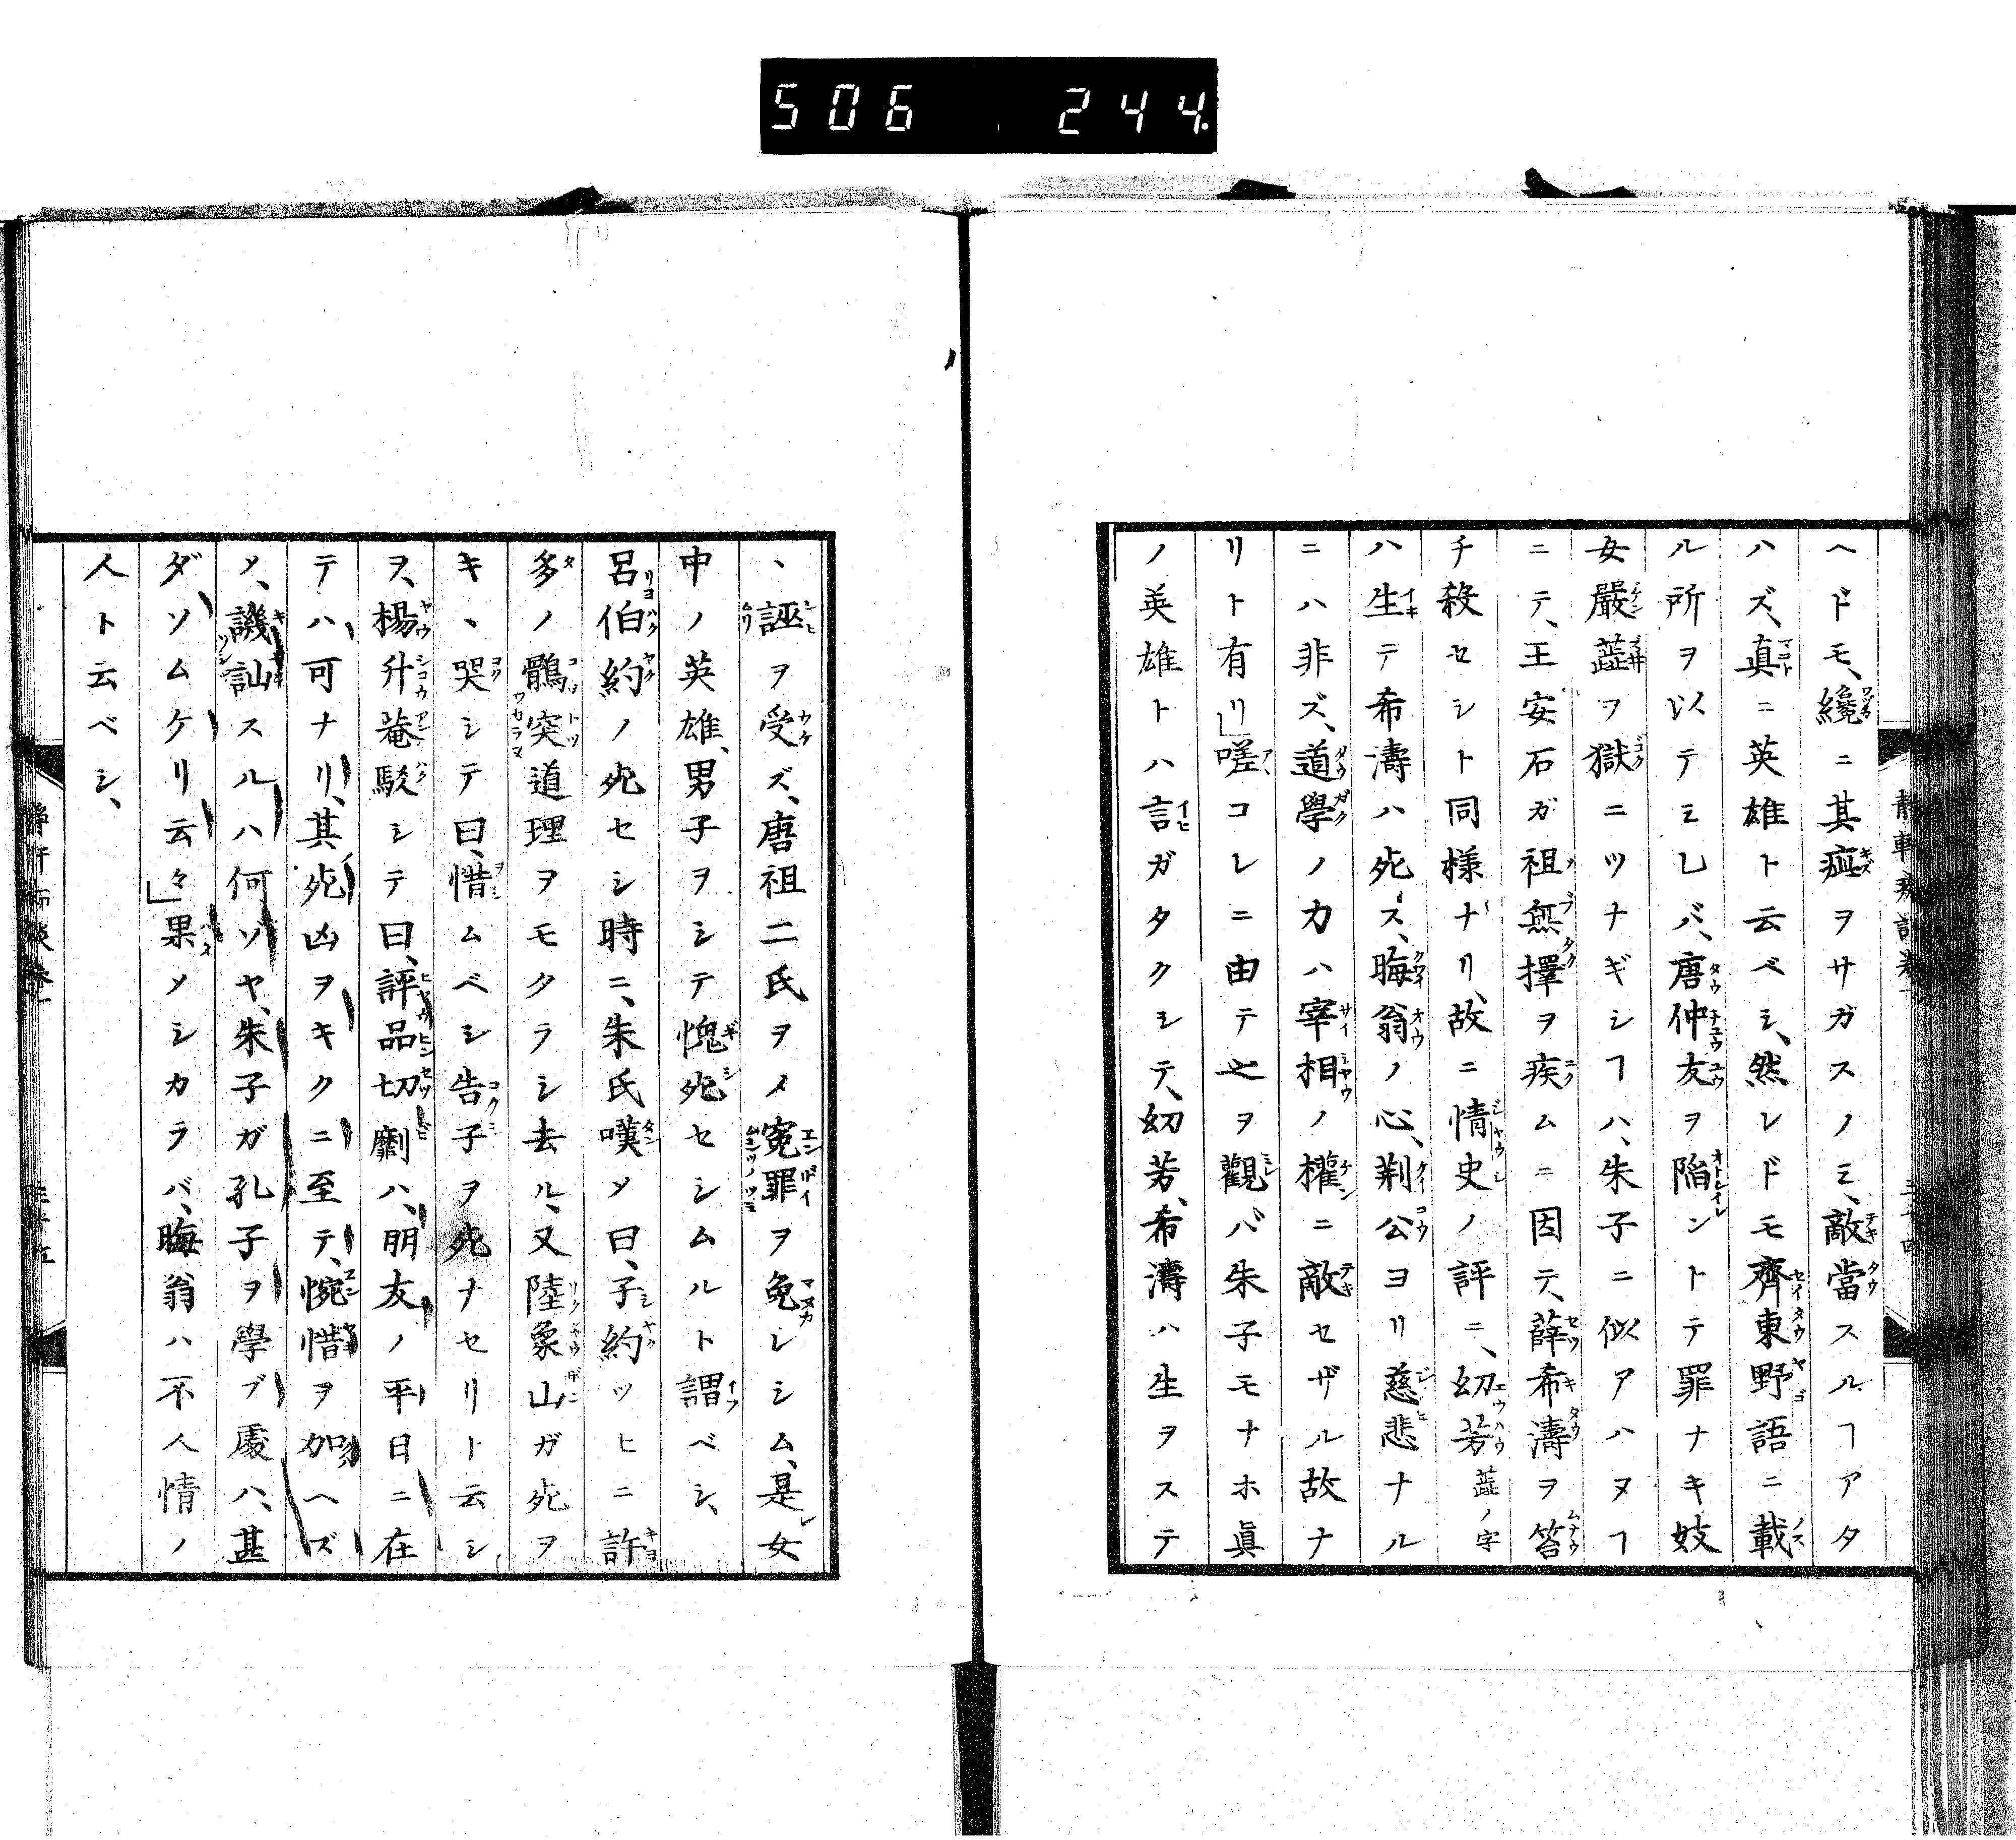 506 244
ヘドモ、纔ニ其疵ヲサガスノミ、敵當スルヿアタ
ハズ、真ニ英雄ト云ベシ、然レドモ齊東野語ニ載
ル所ヲ以テミレバ、唐仲友ヲ陷ントテ罪ナキ妓
女嚴蘂ヲ獄ニツナギシヿハ、朱子ニ似アハヌヿ
ニテ、王安石ガ祖無擇ヲ疾ムニ因テ、薛希濤ヲ笞
チ殺セシト同様ナリ、故ニ情史ノ評ニ、幼芳蘂ノ字
ハ生テ希濤ハ死ス、晦翁ノ心、荊公ヨリ慈悲ナル
ニハ非ズ、道學ノ力ハ宰相ノ權ニ敵セザル故ナ
リト有リ」嗟コレニ由テ之ヲ觀バ朱子モナホ眞
ノ英雄トハ言ガタクシテ、幼芳、希濤ハ生ヲステ
、誣ヲ受ズ、唐祖二氏ヲメ冤罪ヲ免レシム、是レ女
中ノ英雄、男子ヲシテ愧死セシムルト謂ベシ、
呂伯約ノ死セシ時ニ、朱氏嘆メ曰、子約ツヒニ許
多ノ鶻突道理ヲモクラシ去ル、又陸象山ガ死ヲ
キヽ哭シテ曰、惜ムベシ告子ヲ死ナセリト云シ
ヲ、楊升菴駁シテ曰、評品切劘ハ、朋友ノ平日ニ在
テハ可ナリ、其死凶ヲキクニ至テ、惋惜ヲ加ヘズ
メ、譏訕スルハ何ゾヤ、朱子ガ孔子ヲ學ブ處ハ、甚
ダソムケリ云々」果メシカラバ、晦翁ハ不人情ノ
人ト云ベシ、